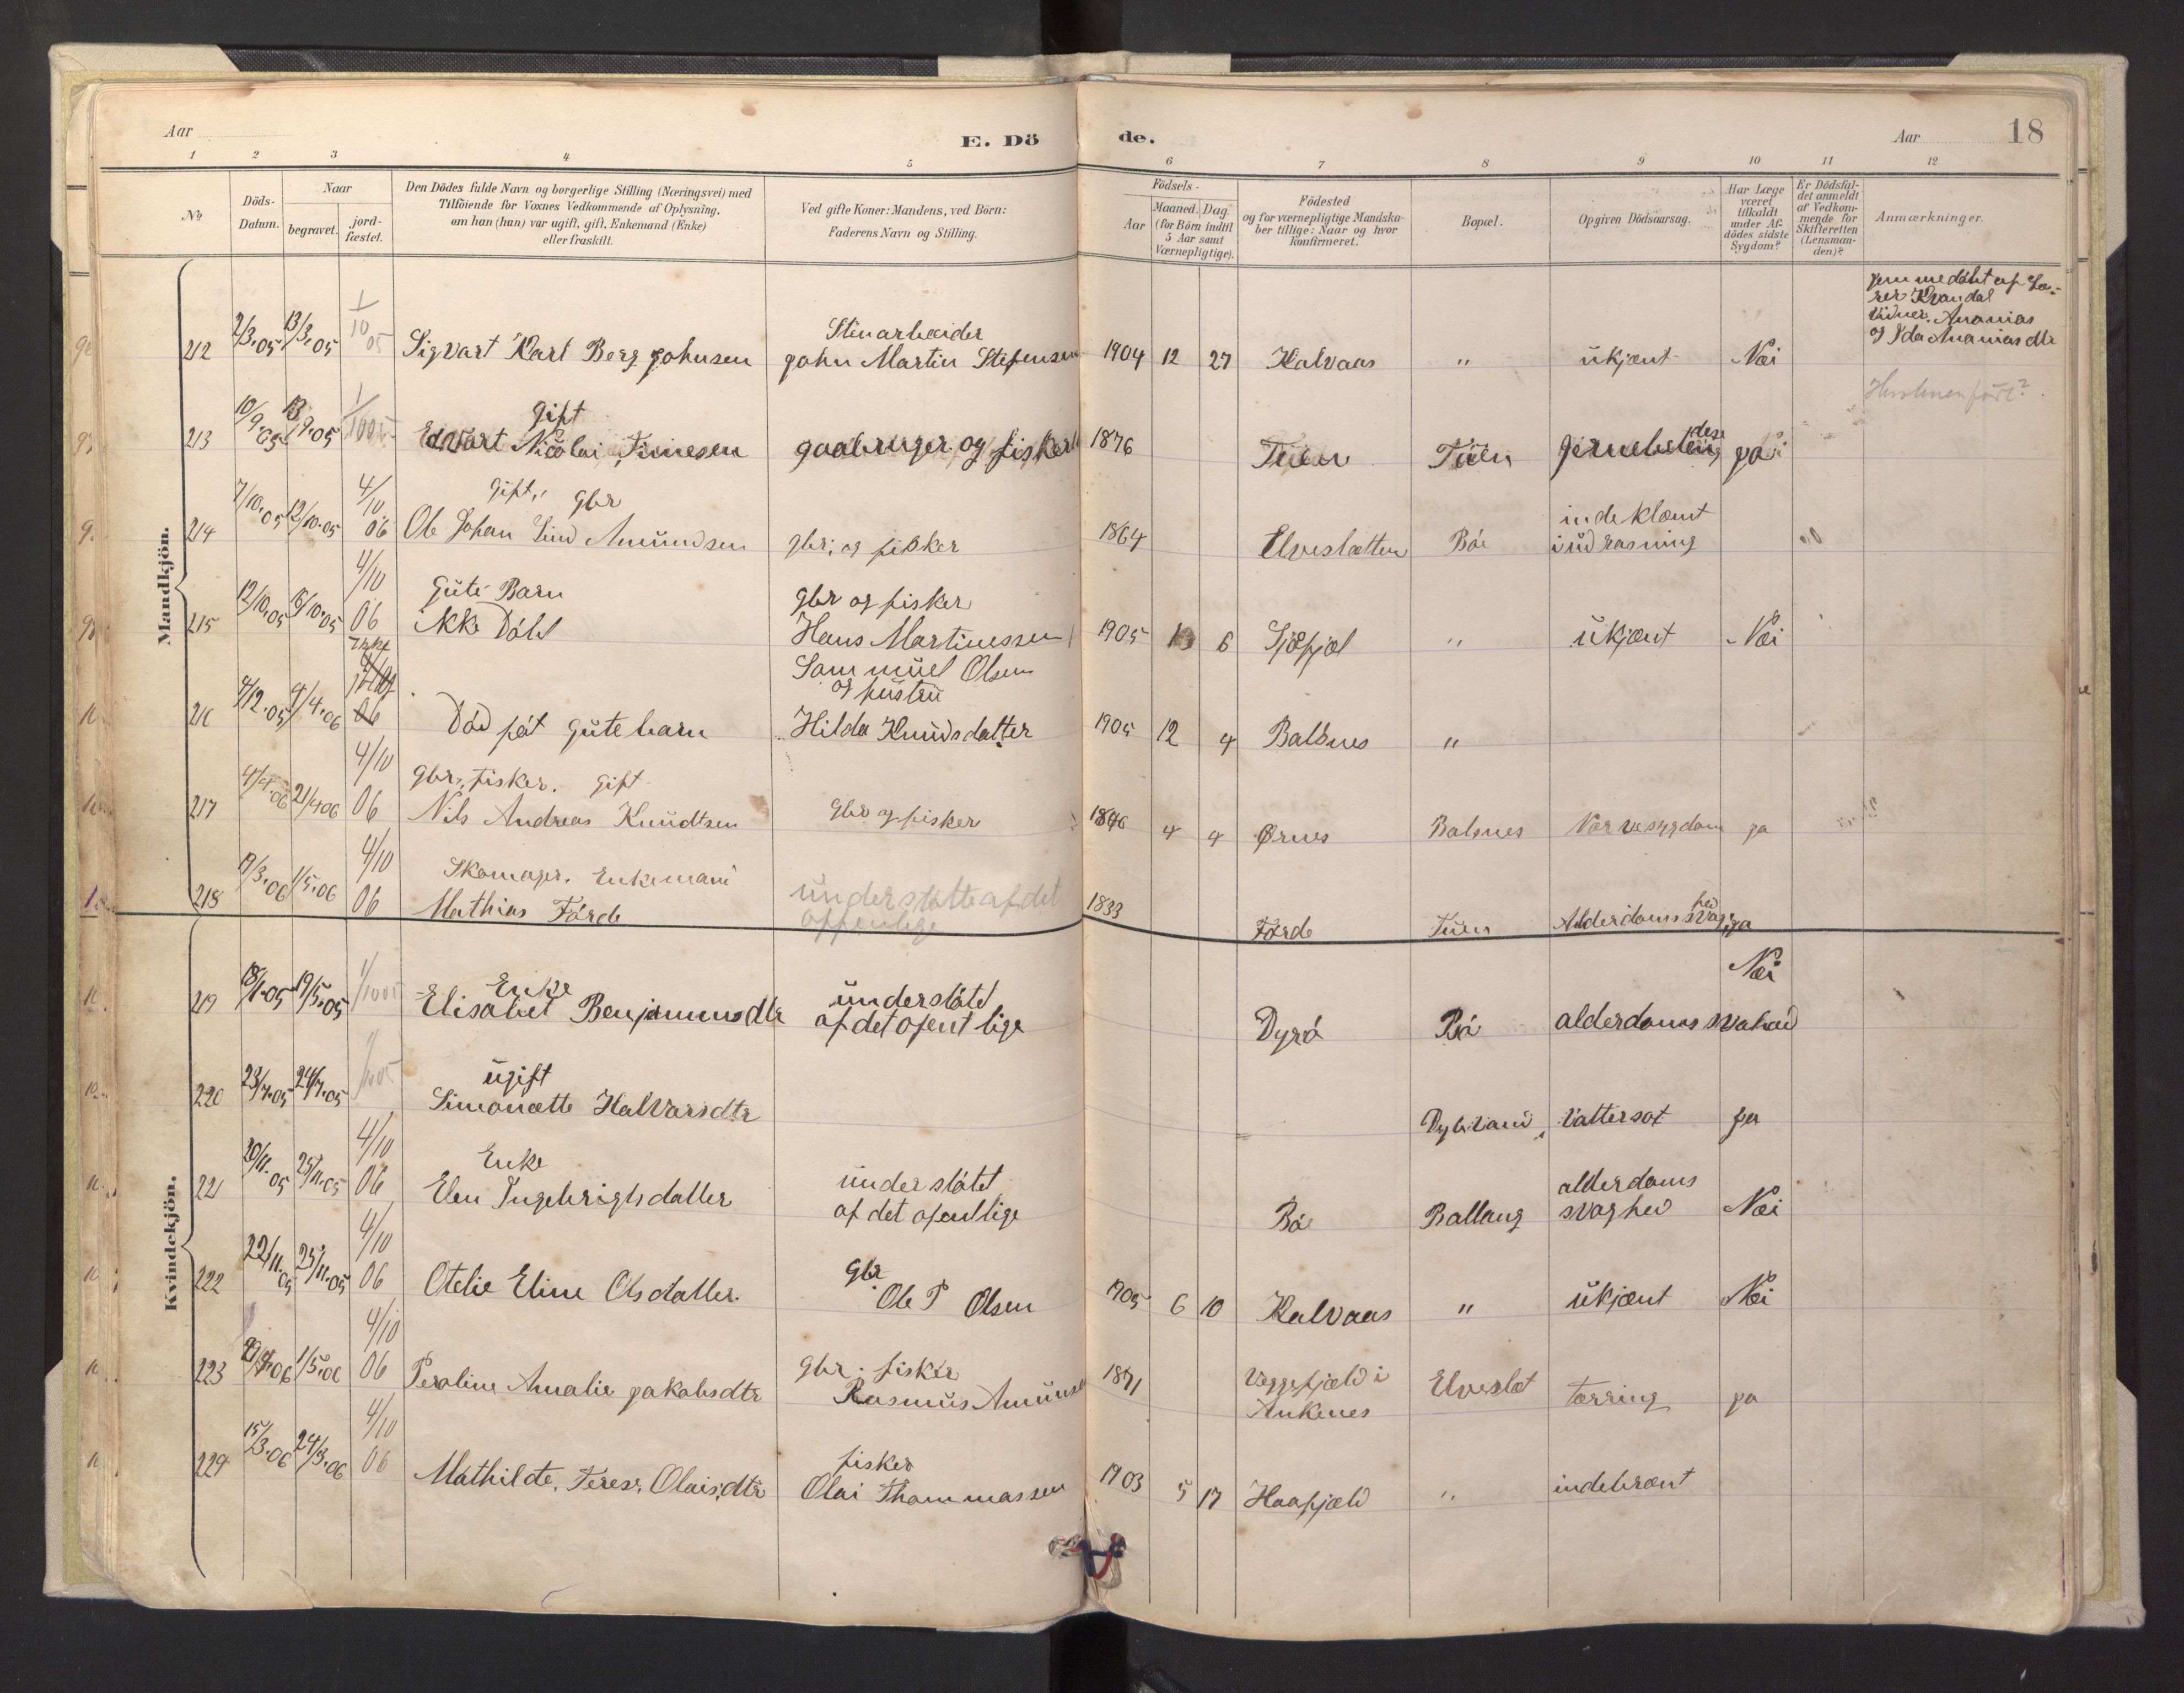 Aar
E. Dö
de.
Aar
18
1 2 3 4 5 6 7 8 9 10 11 12
No
Döds-
Datum.
Naar
begravet.
jord-
fæstet.
Den Dödes fulde Navn og borgerlige Stilling (Næringsvei) med
Tilföiende for Voxnes Vedkommende af Oplysning,
om han (hun) var ugift, gift, Enkemand (Enke)
eller fraskilt.
Ved gifte Koner: Mandens, ved Börn:
Faderens Navn og Stilling.
Födsels-
Aar
Maaned. Dag
(for Börn indtil
5 Aar samt
Værnepligtige).
Födested
og for værnepligtige Mandska-
ber tillige: Naar og hvor
konfirmeret.
Bopæl.
Opgiven Dödsaarsag.
Har Læge
været
tilkaldt
under Af-
dödes sidste
Sygdom?
Er Dödsfal-
det anmeldt
af Vedkom-
mende for
Skifteretten
(Lensman-
den)?
Anmærkninger.
Mandkjön.
212 2/3.05 13/3.05 1/10 05
Sigvart Karl Berg Johnsen
Stinarbeider
John Martin Stefensen
1904 12 27 Kalvaas " ukjent Nei
Jemmedöbt af Læ-
rer Kvandal
Vidner. Ananias
og Ida Ananiasdtr
213 10/9.05 13/9.05 1/10 05
Gift
Edvart Nicolai
gaabruger og fisker
1876 Tuen Tuen ja
214 7/10.05 12/10.05 4/10 06
Gift, Gbr
Ole Johan Lind Amundsen
gbr, og fisker
1864 Elveslætten Bö
indeklemt
i udrasning
215 12/10.05 16/10.05 4/10 06
Gute Barn
ikke Döbt
Gbr og fisker
Hans Martinessen
1905 6 Sjöfjel " ukjent Nei
216 4/12.05 4/4.06
Död föt Gute barn
Sammuel Olsen
og hustru
Hilda Knudsdatter
1905 12 4 Balsnes "
217 4/4.06 21/4 06 4/10 06
Gbr, fisker. Gift
Nils Andreas Knudtsen
Gbr og fisker
4 4 Ørnes Balsnes Narvesygdom ja
218 19/3.06 1/5.06 4/10 06
Skomager. Enkemand
Mathias Förde
understötte af det
offenlige
1833 Förde Tuen Alderdomssvaghed ja
Kvindekjön.
219 18/1.05 19/5.05 1/10 05
Enke
Elisabet Benjaminsdtr
understötet
af det ofentlige
Dyrö Bö alderdoms svahed Nei
220 23/7.05 24/7.05 1/10 05
ugift
Simonette Halvarsdtr
Dybvand, Vattersot ja
221 20/11.05 25/11.05 4/10 06
Enke
Elen Ingebrigtsdatter
understötet
af det ofentlige
Bö Ballang
alderdoms
svaghed Nei
222 22/11.05 25/11.05 4/10 06
Otelie Eline Olsdatter.
Gbr
Ole P Olsen
1905 6 10 Kalvaas " ukjent Nei
223 1/5.06 4/10 06
Peroline Amalie Jakobsdtr
Gbr. fisker
Rasmus Amunsen
1871
Veggefjeld i
Ankenes
Elveslet tærring ja
224 15/3.06 24/3.06 4/10 06
Mathilde, Teres, Olaisdtr
fisker
Olai Thommassen
1903 5 17 Haafjeld " indebrent